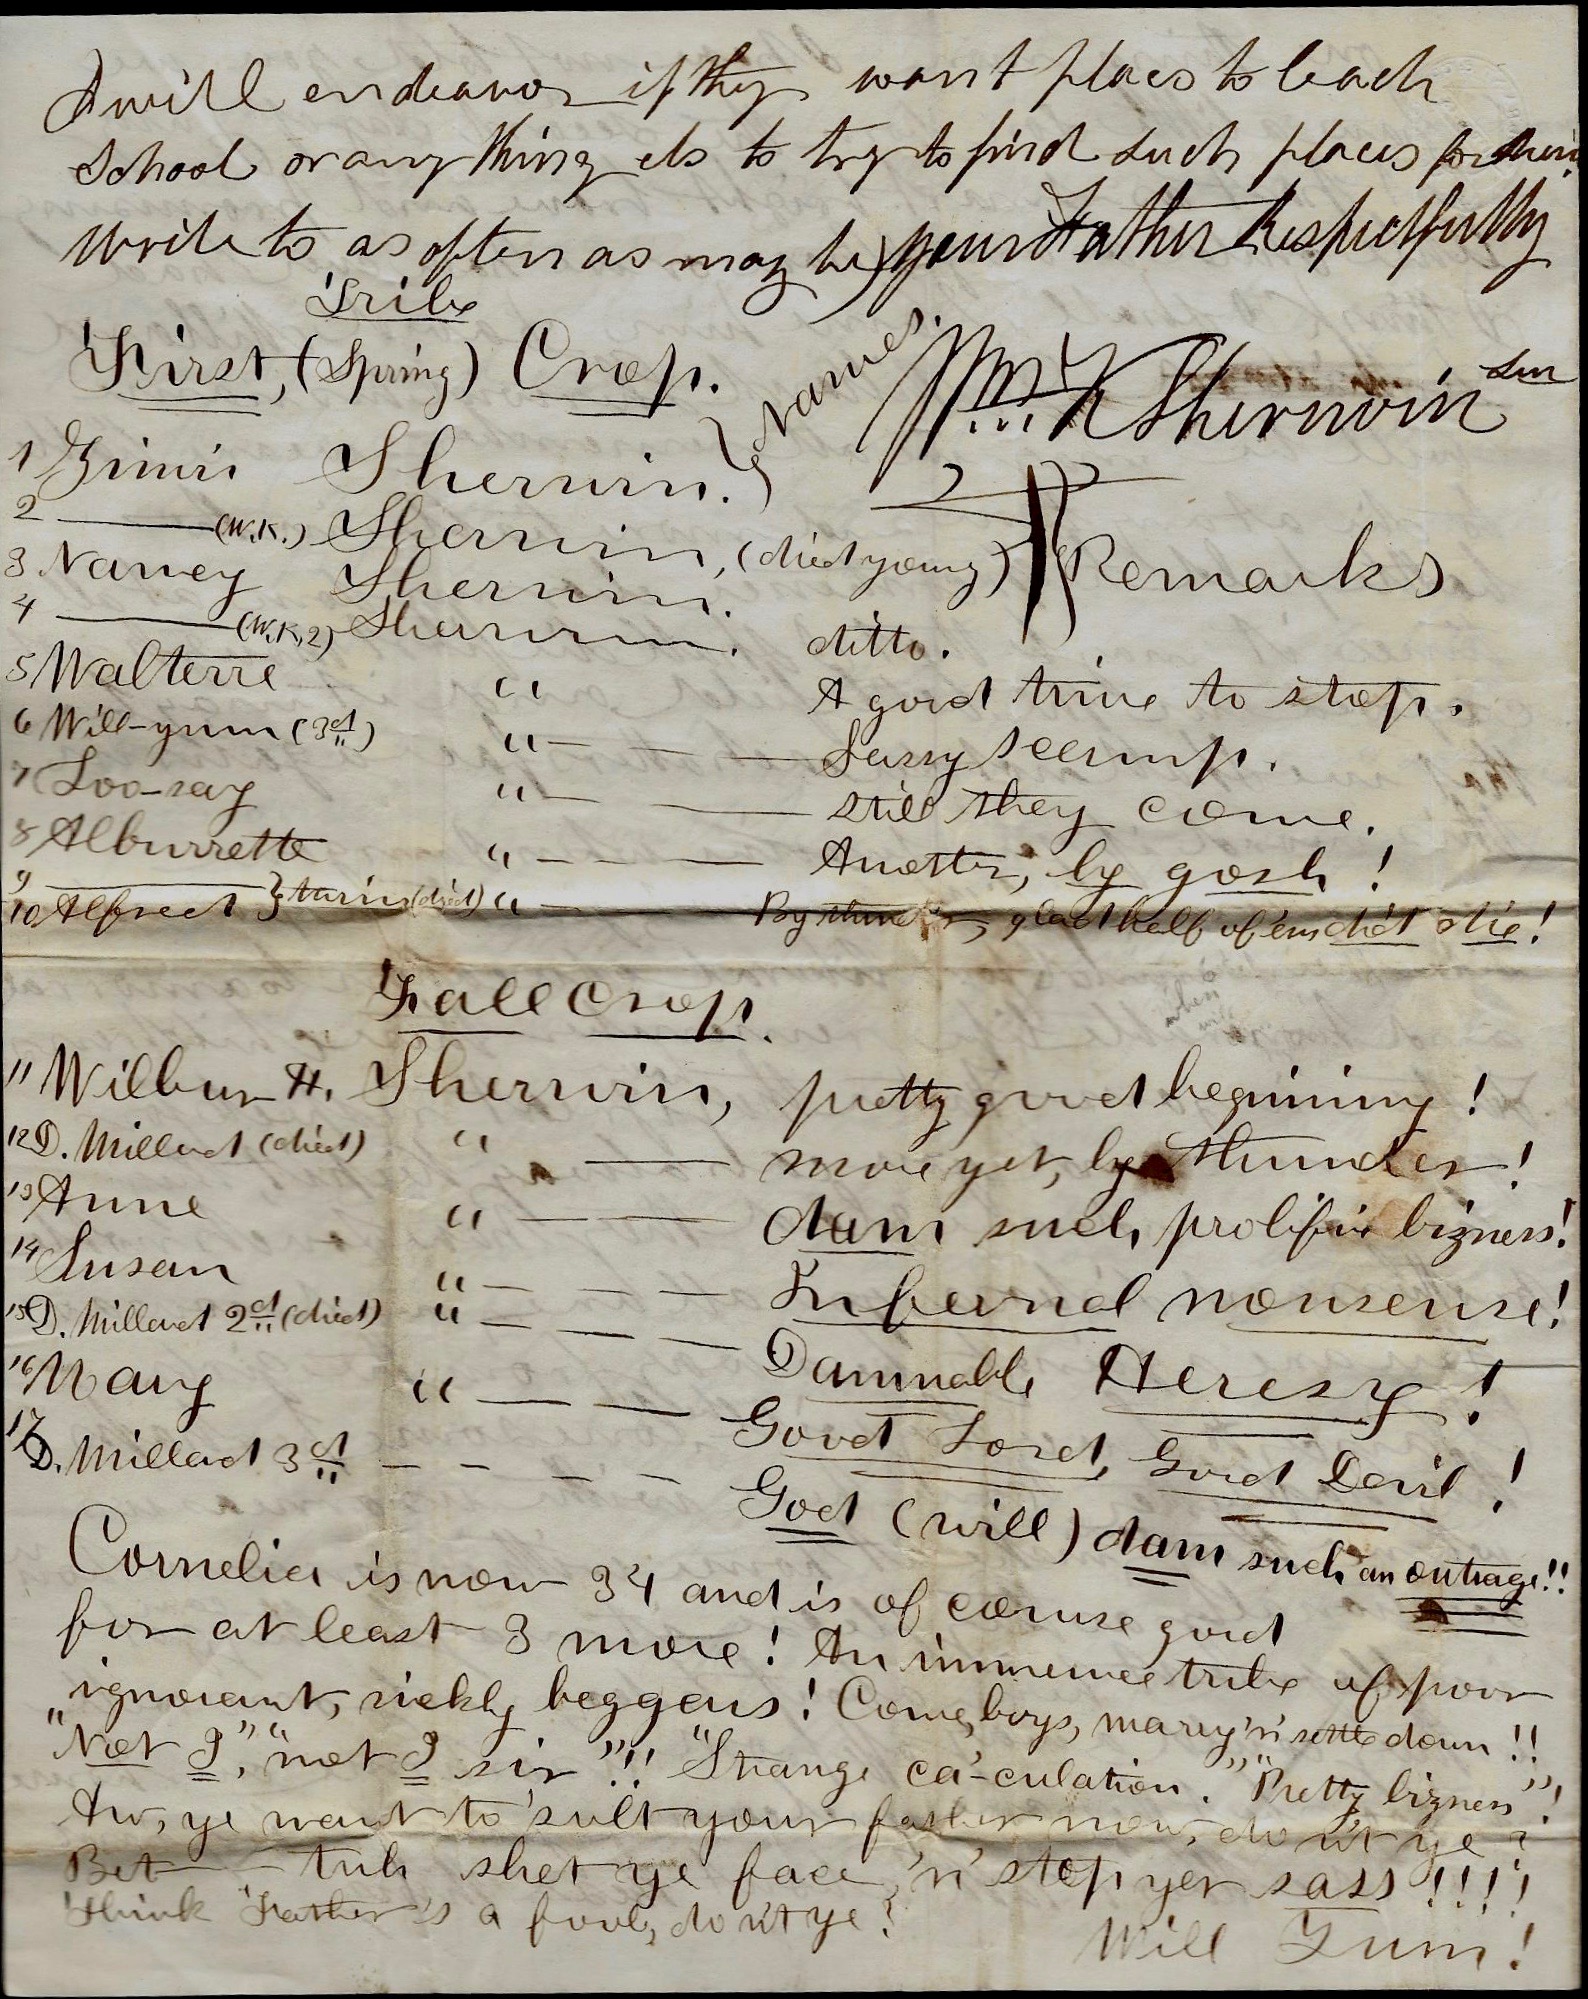 I will endeavor if they want places to teach
school or any thing els to try to find such places for them
Write to as often as may be, your Father Respectfully
Wm K Sherwin Sen
Tribe
First, (Spring) Crop.
Names.
Remarks
1 Zimri Sherwin.
2 —— (W.K.) Sherwin, (died young)
3 Nancy Sherwin.
4 —— (W.K. 2) Sherwin. ditto.
5 Walterre " A good time to stop.
6 Will-yum (3d) " — — — Sassy scamp.
7 Loo-say " — — still they come.
8 Alburrette " — — — Another, by gosh!
9 ——
10 Alfred } twin (died) " — — — By thunder, glad half of 'em did die!
Fall Crop.
11 Wilbur H. Sherwin, pretty good beginning!
12 D. Millard (died) " —— more yet, by thunder!
13 Anne " — — — dam such prolific bizness!
14 Susan " — — — Infernal nonsense!
15 D. Millard 2d (died) " — — — Damnable Heresy!
16 Mary " — — — Good Lord, Good Devil!
17 D. Millard 3d — — — — God (will) dam such an outrage!!
Cornelia is now 34 and is of course good
for at least 3 more! An immense tribe of poor
ignorant, sickly beggars! Come, boys, marry 'n' settle down!!
"Not I", "not I sir"!! "Strange ca'-culation." "Pretty bizness"!
Aw, ye want to 'sult your father now, do n't ye?
Bet— —tuh shet ye face, 'n' stop yer sass!!!!
Think Father's a fool, do n't ye?
Will Yum!